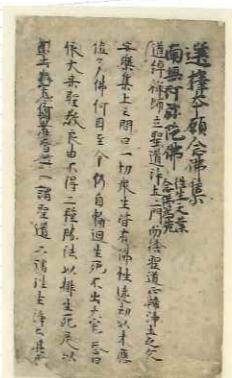 選擇本願念佛集
南無阿弥陀佛 往生之業 念佛為先
道綽禅師立聖道浄土二門而捨聖道正帰浄土之文
安楽集上云問曰一切衆生皆有佛性遠劫以来應
值多佛何因至今仍自輪廻生死不出火宅答曰
依大乗聖教良由不得二種勝法以排生死是以
不出火宅何者為二一謂聖道二謂往生浄土其